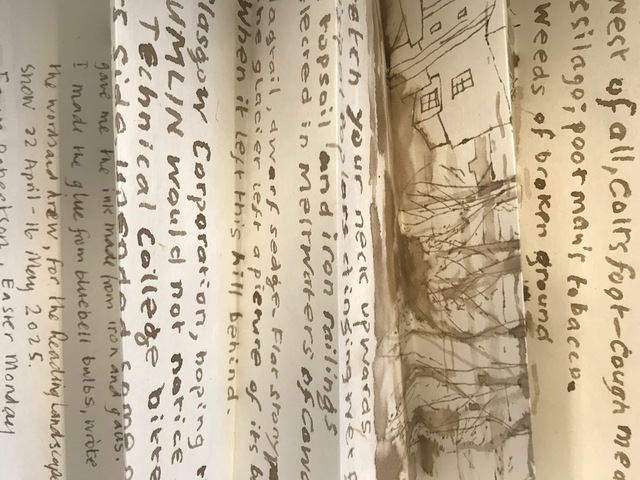 west of all, Coltsfoot-Cough mea
ssilago; poor man's tobacco.
weeds of broken ground
etch your neck upwards
topsoil and iron railings
in meltwaters of
agtail, dwarf sedge.
glacier left a picture of its h
When it left this hill behind.
lasgow Corporation, hoping t
UMLIN would not notice
Technical Colledge bitte
s side upended some
gave me the ink made from iron and galls.
I made the glue from bluebell bulbs, wrote
the words and drew, for the Reading Landscape
snow 22 April - 16 May 2025.
Robertson, Easter Monday